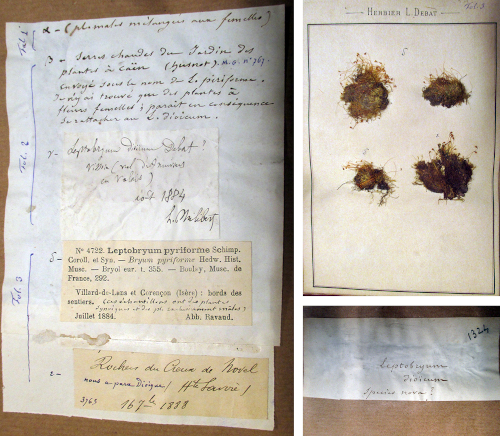 α - (pl. males mélangées aux femelles)
Fol. 1
β - Serres chaudes du Jardin des
plantes à Caën (Husnot). M. G. n° 767.
envoyé sous le nom de L. piriforme.
Je n'y ai trouvé que des plantes à
fleurs femelles; paraît en conséquence
se rattacher au L. dioicum.
Fol. 2
γ - Leptobryum dioicum Debat?
en Valais)
août 1884
Fol. 3
δ - N° 4722. Leptobryum pyriforme Schimp.
Coroll. et Syn. — Bryum pyriforme Hedw. Hist.
Musc. — Bryol eur. t. 355. — Boulay, Musc. de
France, 292.
Villard-de-Lans et Corençon (Isère) : bords des
sentiers. (Ces échantillons ont des plantes
synoïques et des pl.
Juillet 1884. Abb. Ravaud.
ε - Roches du Creux de Novel
nous a paru Dioïque!
3763 1888
HERBIER L. DEBAT
Fol. 3
δ
1324
Leptobryum
dioicum
species nova?